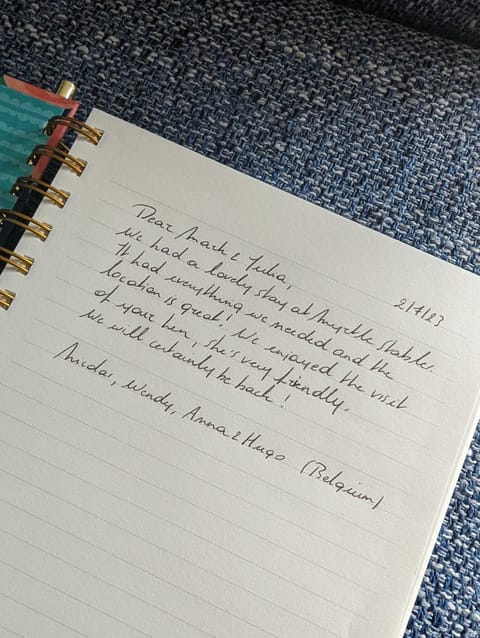 2/7/23
Dear Mark & Julia,
We had a lovely stay at Myrtle Stables.
It had everything we needed and the
location is great! We enjoyed the visit
of your hen, she's very friendly.
We will certainly be back!
Wendy, Anna & Hugo (Belgium)